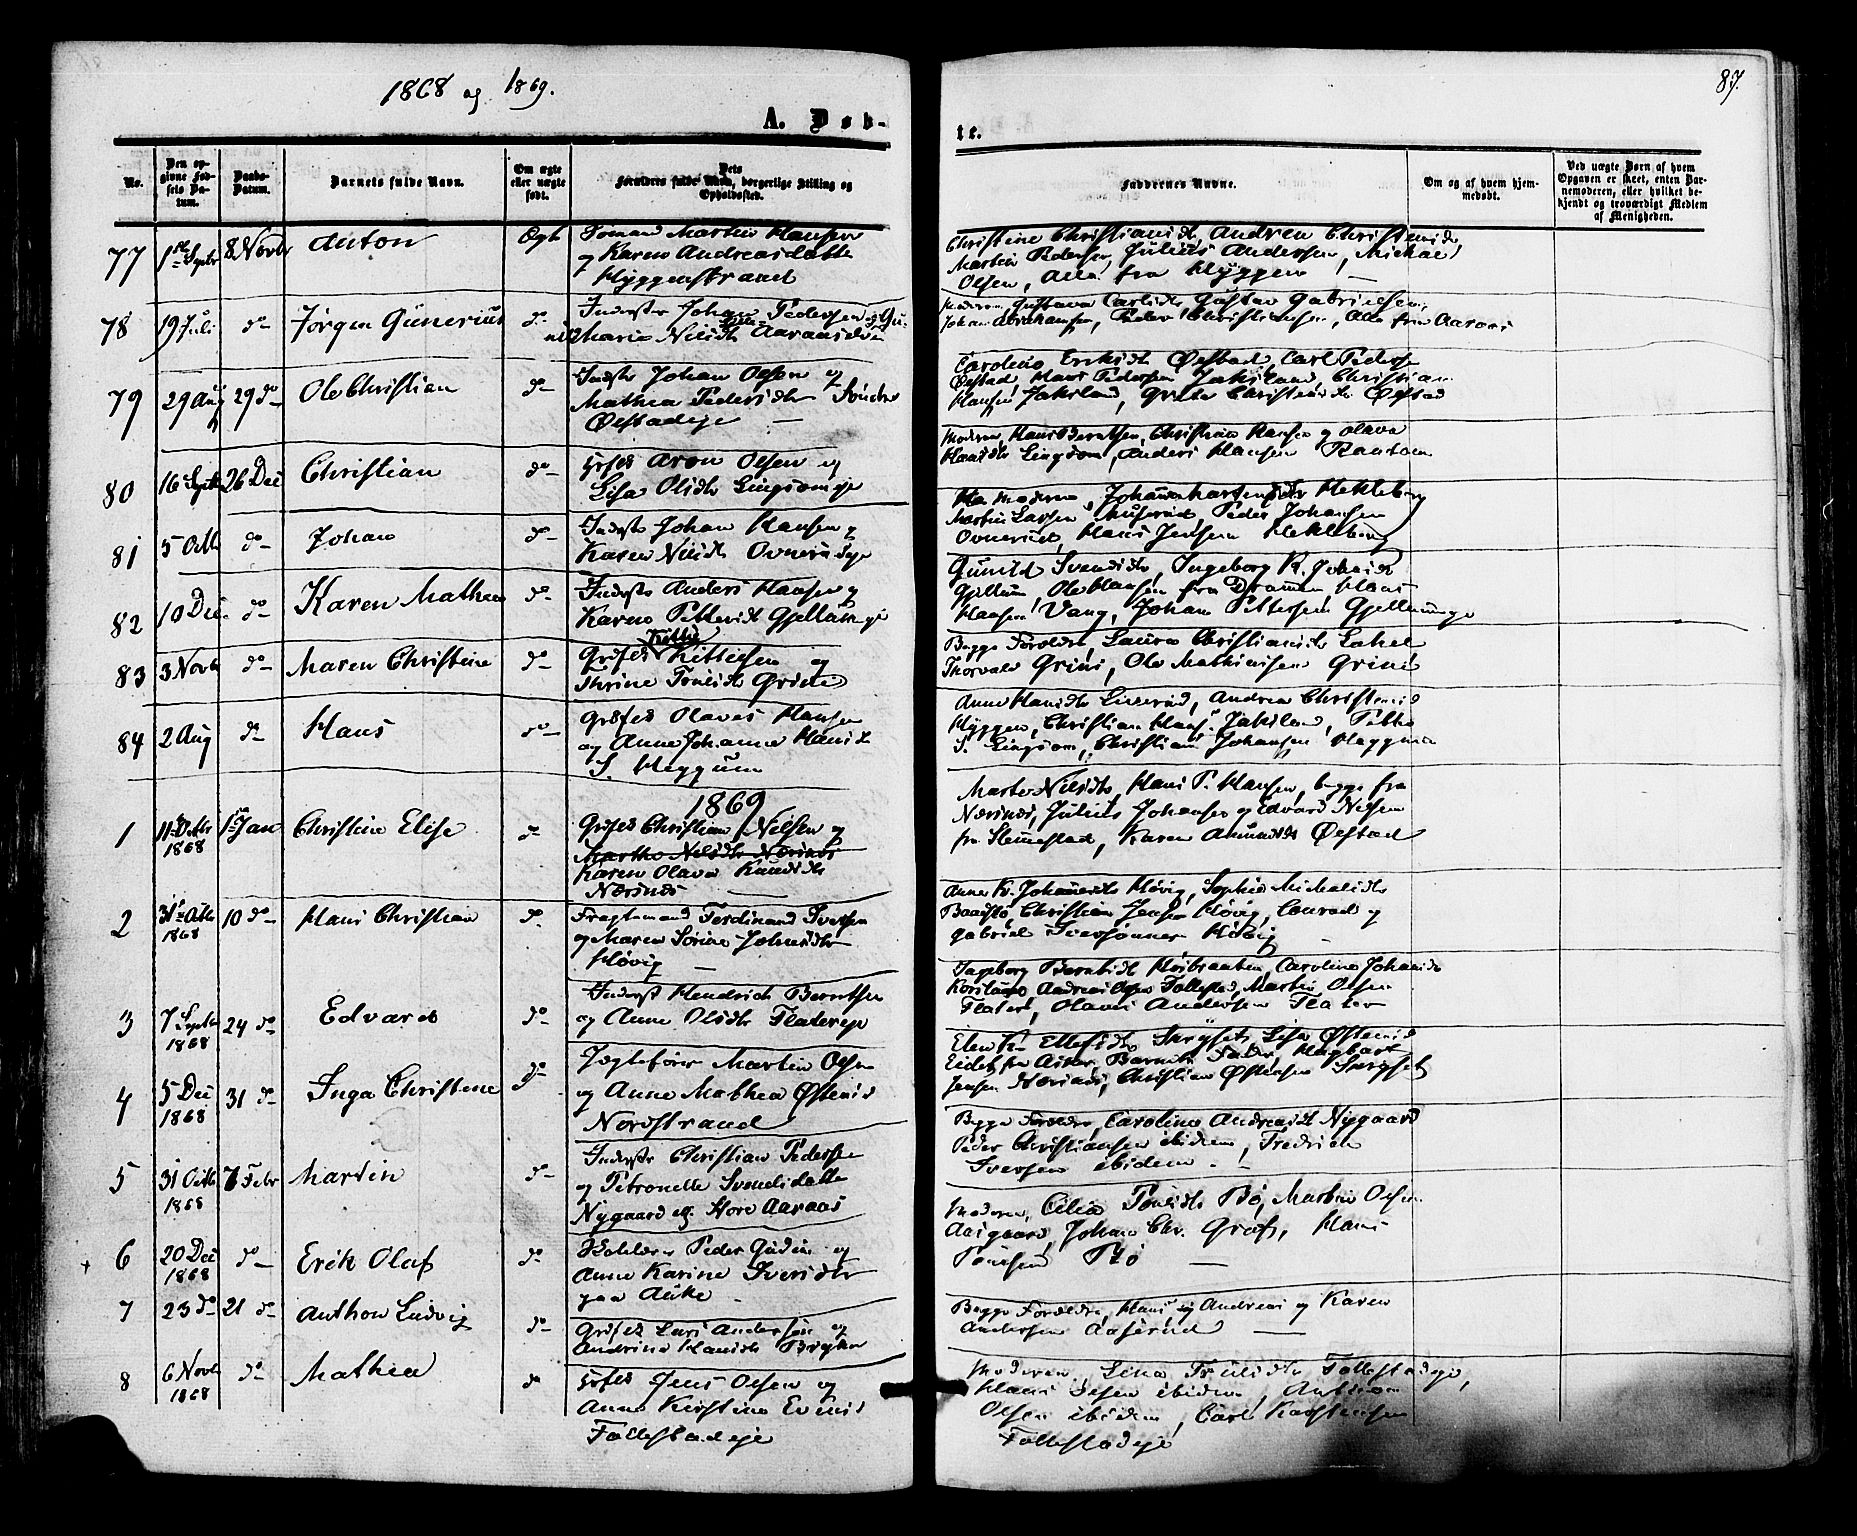 1868 og 1869.
87.
A. Døb-
te.
No.
Den op-
givne Fød-
sels Da-
tum.
Daabs-
Datum.
Barnets fulde Navn.
Om ægte
eller uægte
født.
Dets
Forældres fulde Navn, borgerlige Stilling og
Opholdssted.
Faddernes Navne.
Om og af hvem hjem-
medøbt.
Ved uægte Børn af hvem
Opgaven er skeet, enten Bar-
nemoderen, eller hvilket be-
kjendt og troværdigt Medlem
af Menigheden.
77 1ste Septbr 8 Novbr Anton Ægte Sømand Martin Hansen
og Karen Andreasdatte
Hyggenstrand
Christine Christiansdt Andrea Christensdt
Martin Pedersen, Julius Andersen, Michael
Olsen, Alle fra Hyggen
78 19 Juli do Jørgen Gunerius do Inderste Johan Pedersen og
Maria Nilsdt Aaraasdeie
Moderen, Gustava Carlsdt Gustav Gabrielsen,
Johan Abrahamsen, Peder Christiansen, Alle fra Aaros
79 29 Aug 29 do Ole Christian do Inderste Johan Olsen og
Mathea Pedersdtr Søndre
Øvstadeje
Caroline Eriksdt Øvstad, Carl Peders
Øvstad, Hans Pedersen Jaksland, Christian
Hansen Jaksland, Grete Christensdt Øvstad
80 16 Septbr 26 Dec Christian do Husfd Aron Olsen og
Lisa Olsdtr Lingsomeje
Moderen, Hans Berntsen, Christian Hansen og Olava
Hansdtr Lingsom, Anders Hansen
81 5 Octb do Johan do Inderste Johan Hansen og
Karen Nilsdt Ovnerudeje
Moderen, Johanne Martensdtr Hekleberg
Martin Larsen Peder Johansen
Ovnerud, Hans Jensen Hekleberg
82 10 Dec do Karen Mathea do Inderste Anders Hansen og
Karen Pettersdt Gjellumeje
Gunild Svendsdt, Ingeborg K. Johnsdt
Gjellum, Ole Hansen fra Drammen Hans
Hansen Vang, Johan Pettersen Gjellumeje
83 3 Novb do Maren Christine do Grdfd Kittilsen og
Thrine Poulsdt Grini
Begge Forældre, Laura Christiansdt
Thorvald Grini, Ole Mathisen Grini
84 2 Aug do Hans do Grdfd Olaves Hansen
og Anne Johanne Hansdt
S. Heggum
Anne Hansdtr, Andrea Christensdt
Hyggen, Christian Hans. Jaksland,
S. Lingsom, Christian Johansen Heggum
1869
1 11 Octbr
1868 1 Jan Christine Elise do Grdfd Christian Nilsen og
Marthe Nilsdtr Nærsnes
Karen Olava Knudsdtr
Nærsnes
Marte Nilsdtr, Hans P. Hansen, begge fra
Nærsnes, Julius Johansen og Edvard Nilsen
fra Slemmestad, Karen Amundsdt Øvstad
2 31 Octb
1868 10 do Hans Christian do Fragtemand Ferdinand Iversen
og Maren Sørine Johnsdtr
Høvig
Anne K. Johannesdtr Høvig, Sophie Michalsdtr
Baadstø, Christian Jensen Høvig, Conrad og
Gabriel Iversønner Høvig
3 7 Septbr
1868 24 do Edvard do Inderst Hendrick Berntsen
og Anne Olsdtr Flatereje
Ingeborg Berntsdt Høibraaten, Caroline Johansdt
Andreas Olsen Follestad, Martin Olsen
Flater, Olaus Andersen Flater
4 5 Dec
1868 31 do Inga Christine do Jagtefører Martin Olsen
og Anne Mathea Østensdt
Nordstrand
Elen K. Ellefsdtr Skryset, Lisa Østensdt
Eidet fra Asker, Barnets Fader, Hagbart
Jensen Nærsnes, Christian Østensen Skryset
5 31 Octb
1868 7 Febr Martin do Inderste Christian Pedersen
og Petronelle Svendsdatte
Nygaard eje Store Aaraas
Begge Forældre, Caroline Andreasdt Nygaard
Peder Christiansen ibidem, Fredrick
Iversen ibidem
6 20 Dec
1868 do Erik Olaf do Peder Gudim og
Anne Karine Iversdtr
paa
Moderen, Cilia Poulsdtr Bø, Martin Olsen
Aasgaard, Johan Chr. Graff, Hans
Poulsen Bø
7 23 do 21 do Anthon Ludvig do Grdfd Lars Andersen og
Andrine Hansdt
Begge Forældre, Hans og Andreas og Karen
Andersen Aaserud
8 6 Novb
1868 do Mathea do Husfd Jens Olsen og
Anne Kirstine Evensdt
Follestadeje
Moderen, Lina Truelsdtr Follestadeje,
Hans Olsen ibidem, Anthon
Olsen ibidem, Carl Karstensen
Follestadeje